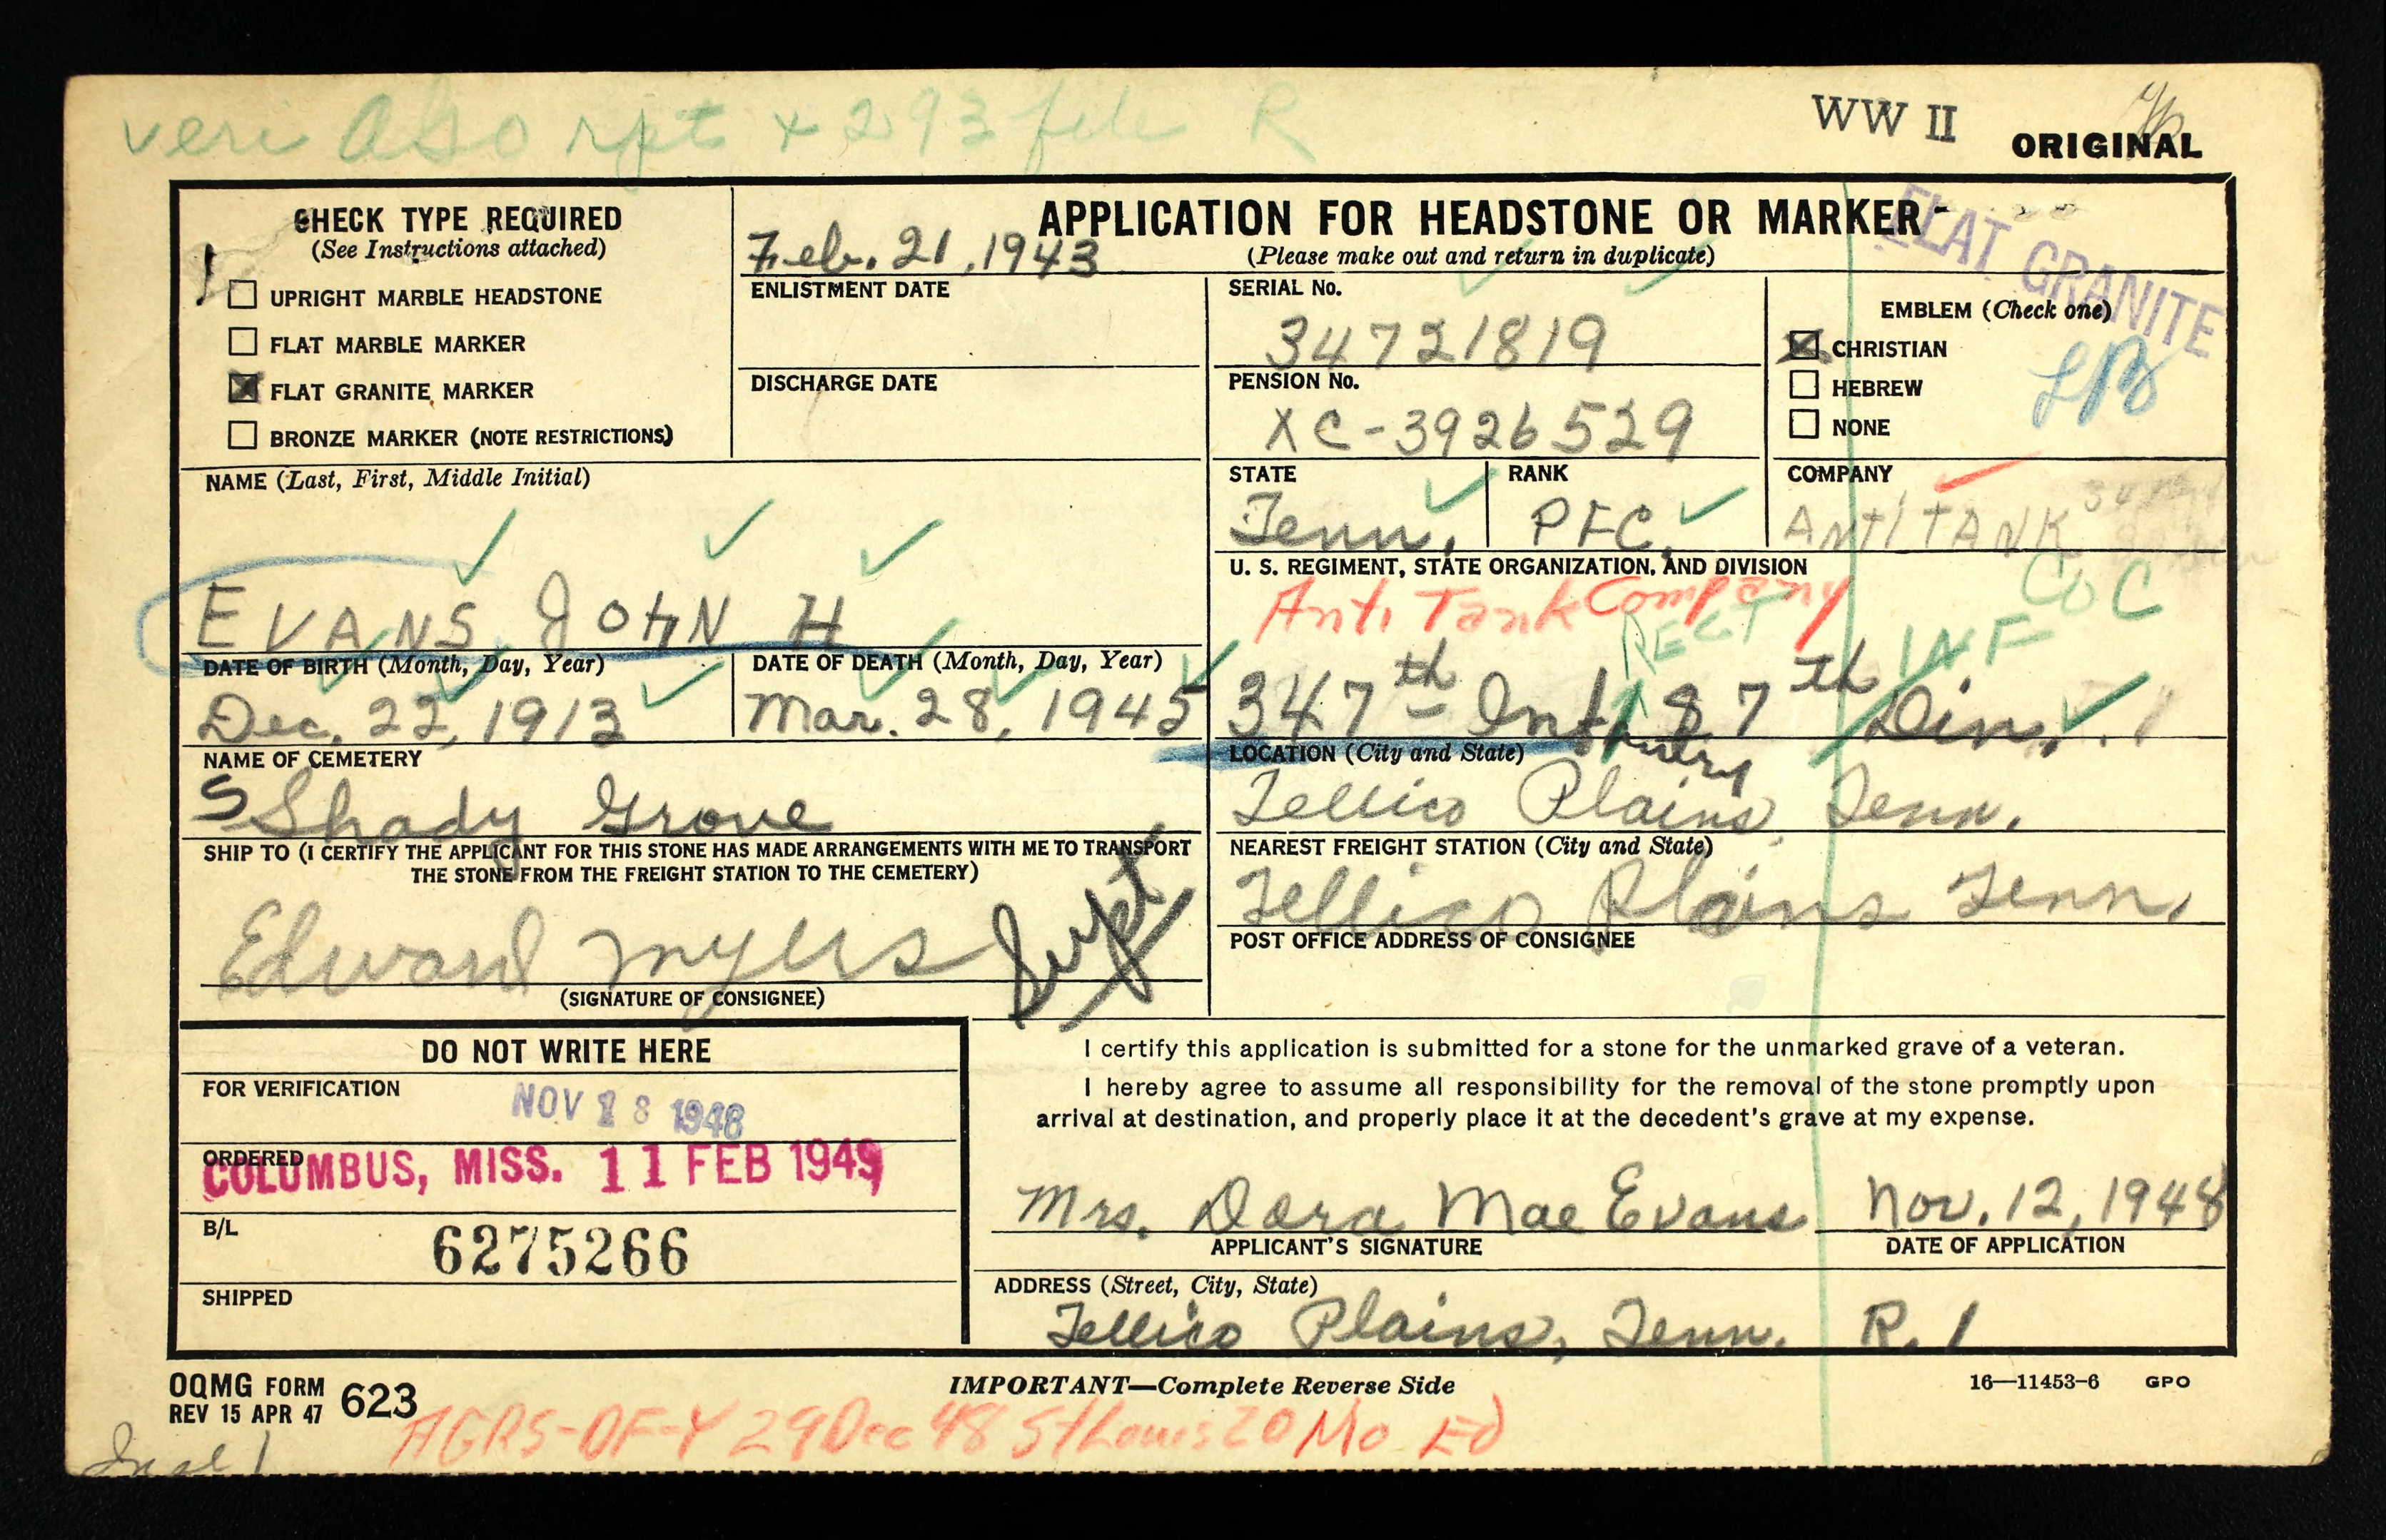 veri AGO rpt + 293 file R
WW II
ORIGINAL
CHECK TYPE REQUIRED
(See Instructions attached)
UPRIGHT MARBLE HEADSTONE
FLAT MARBLE MARKER
FLAT GRANITE MARKER
BRONZE MARKER (NOTE RESTRICTIONS)
Feb. 21, 1943
ENLISTMENT DATE
DISCHARGE DATE
APPLICATION FOR HEADSTONE OR MARKER
(Please make out and return in duplicate)
FLAT GRANITE
SERIAL No.
34721819
PENSION No.
XC-3926529
EMBLEM (Check one)
CHRISTIAN
HEBREW
NONE
NAME (Last, First, Middle Initial)
EVANS JOHN H
STATE
Tenn.
RANK
PFC.
COMPANY
ANTI TANK
Co C
U. S. REGIMENT, STATE ORGANIZATION, AND DIVISION
Anti Tank Company
REGT INF
347th Infantry 87th Div.
DATE OF BIRTH (Month, Day, Year)
Dec. 22, 1913
DATE OF DEATH (Month, Day, Year)
Mar. 28, 1945
NAME OF CEMETERY
S Shady Grove
LOCATION (City and State)
Tellico Plains, Tenn.
SHIP TO (I CERTIFY THE APPLICANT FOR THIS STONE HAS MADE ARRANGEMENTS WITH ME TO TRANSPORT
THE STONE FROM THE FREIGHT STATION TO THE CEMETERY)
Edward Myers Supt
(SIGNATURE OF CONSIGNEE)
NEAREST FREIGHT STATION (City and State)
Tellico Plains Tenn.
POST OFFICE ADDRESS OF CONSIGNEE
DO NOT WRITE HERE
FOR VERIFICATION
NOV 18 1948
ORDERED
COLUMBUS, MISS. 11 FEB 1949
B/L
6275266
SHIPPED
I certify this application is submitted for a stone for the unmarked grave of a veteran.
I hereby agree to assume all responsibility for the removal of the stone promptly upon
arrival at destination, and properly place it at the decedent's grave at my expense.
Mrs. Dora Mae Evans Nov. 12, 1948
APPLICANT'S SIGNATURE DATE OF APPLICATION
ADDRESS (Street, City, State)
Tellico Plains, Tenn. R. 1
OQMG FORM 623
REV 15 APR 47
IMPORTANT—Complete Reverse Side
16—11453-6 GPO
AGRS-DF-Y 29 Dec 48 St Louis 20 Mo Ed